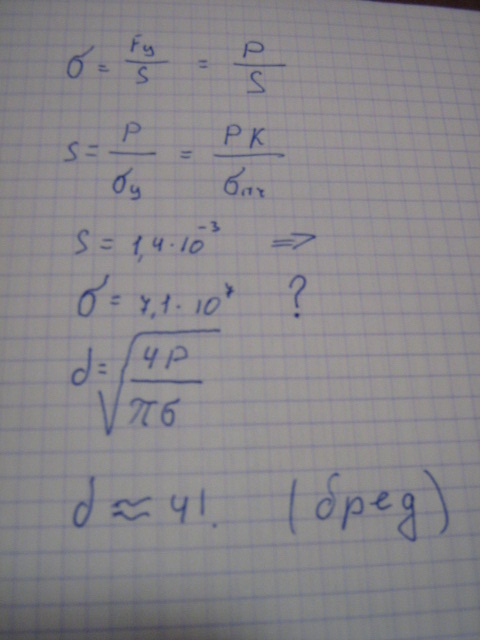 σ = Fц / S = P / S
S = P / σц = P K / σпч
S = 1,4 · 10⁻³ ⇒
σ = 7,1 · 10⁷ ?
d = √(4P / πσ)
d ≈ 4!. (бред)